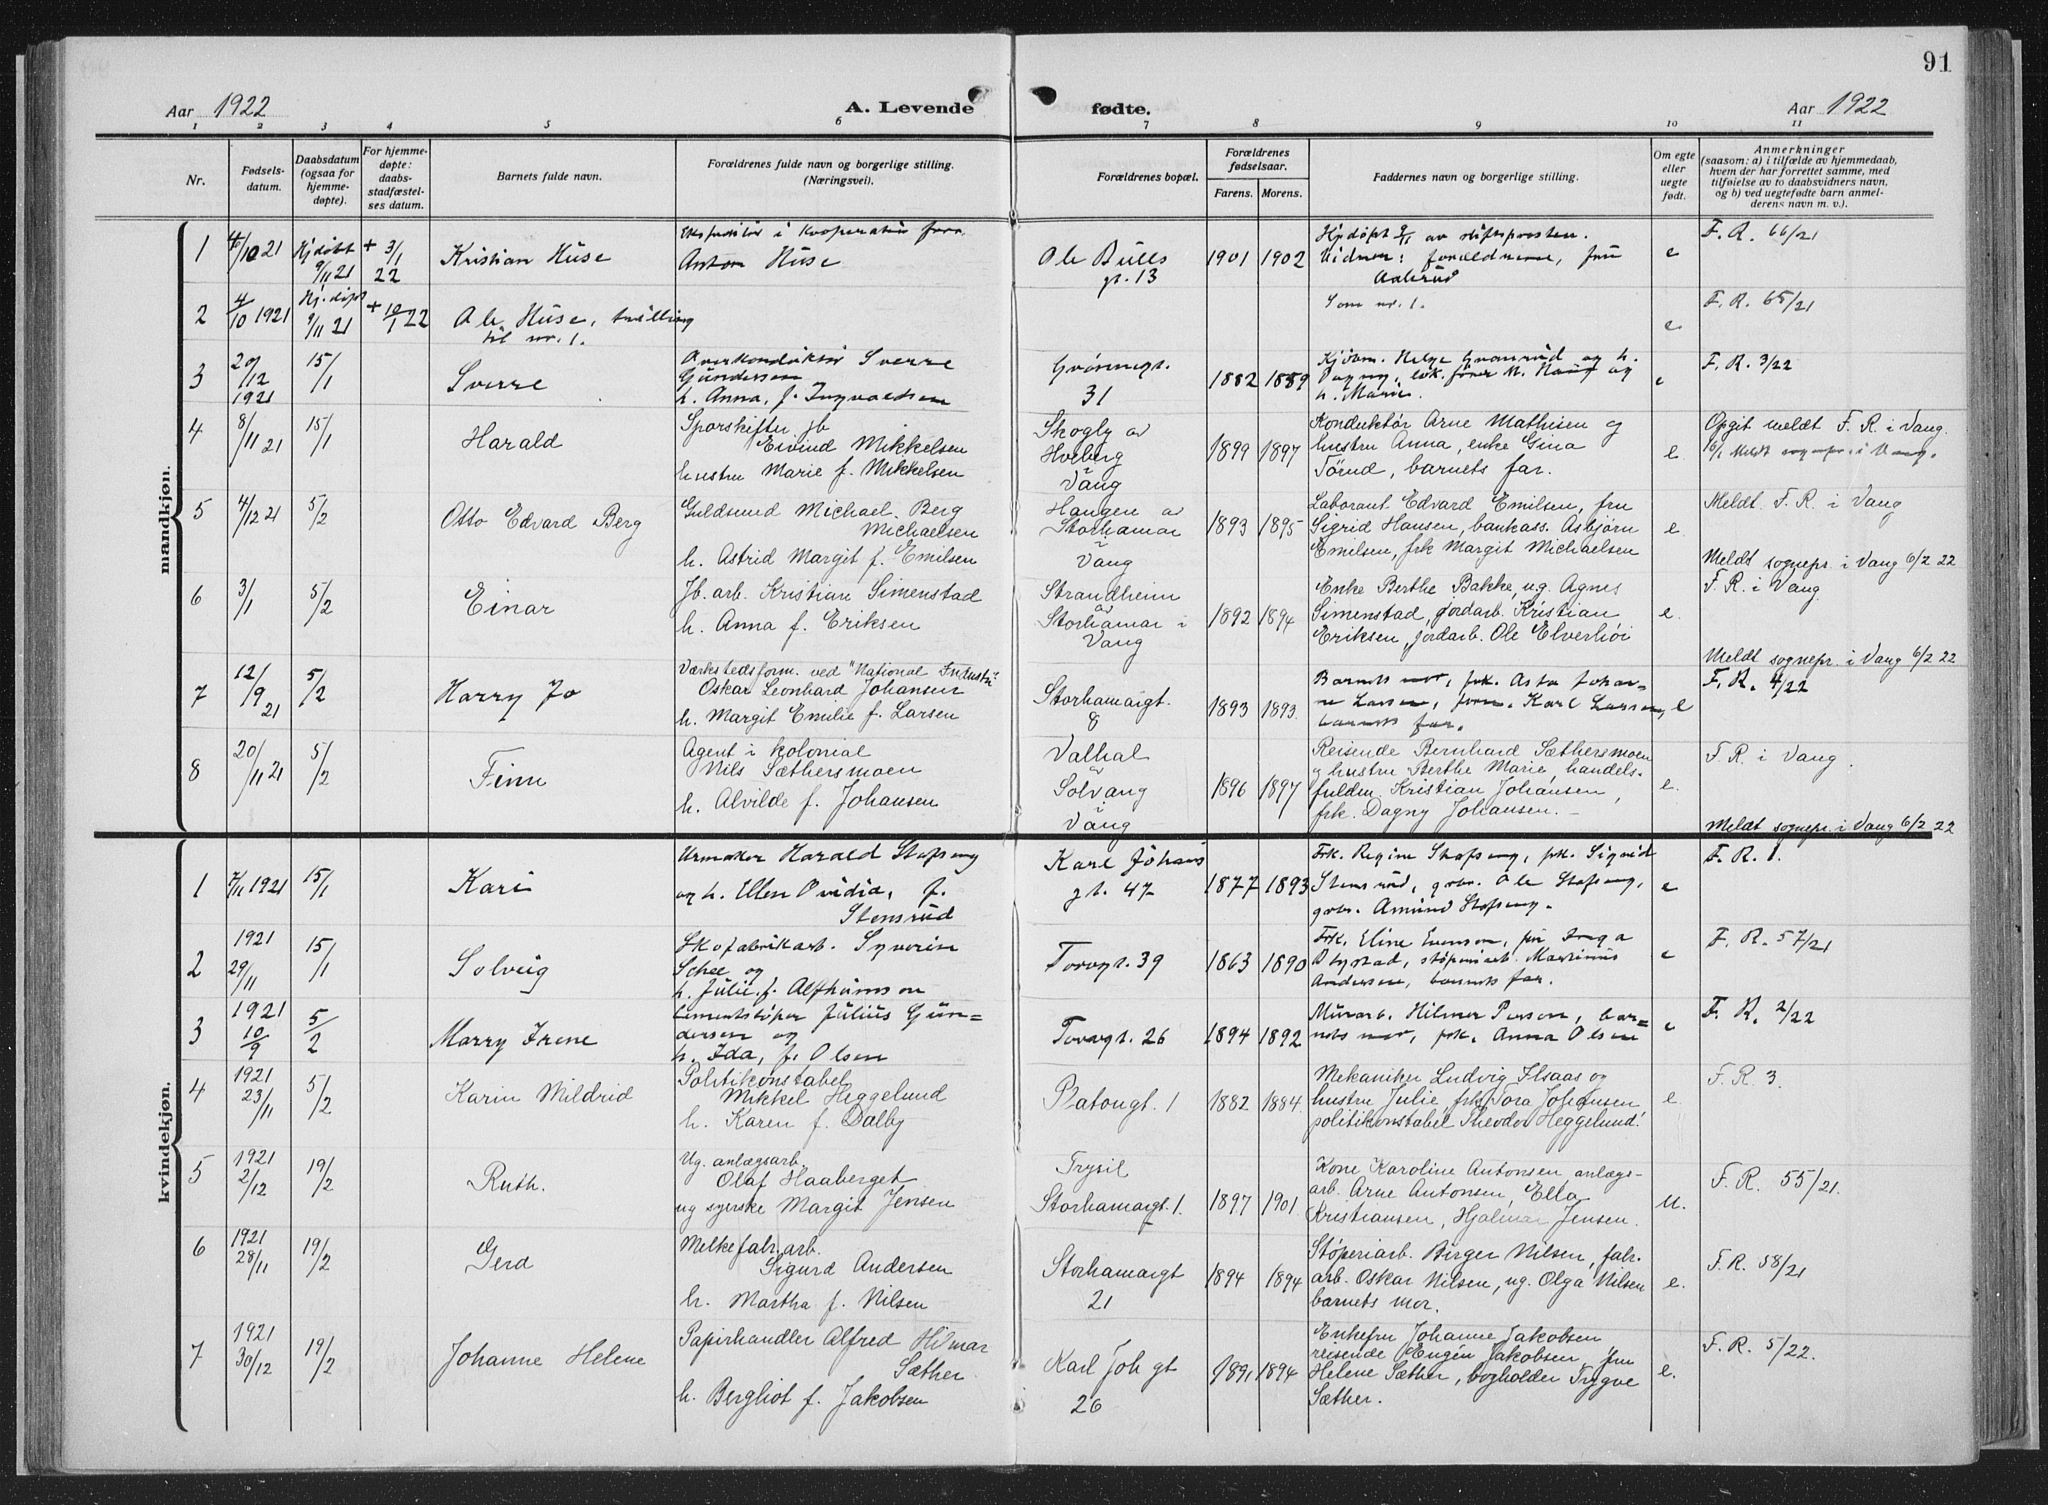 91
Aar 1922
A. Levende
fødte.
Aar 1922
1 2 3 4 5 6 7 8 9 10 11
Nr.
Fødsels-
datum.
Daabsdatum
(ogsaa for
hjemme-
døpte).
For hjemme-
døpte:
daabs-
stadfæstel-
ses datum.
Barnets fulde navn.
Forældrenes fulde navn og borgerlige stilling.
(Næringsvei).
Forældrenes bopæl.
Forældrenes
fødselsaar.
Farens. Morens.
Faddernes navn og borgerlige stilling.
Om egte
eller
uegte
født.
Anmerkninger
(saasom: a) i tilfælde av hjemmedaab,
hvem der har forrettet samme, med
tilføielse av to daabsvidners navn,
og b) ved uegtefødte barn anmel-
derens navn m. v.).
mandkjøn.
1 4/10 21 Hjdøbt 9/11 21 + 3/1 22
Kristian Huse
Anton Huse
Ole Bulls
gt. 13
1901 1902
Hjdøpt 9/11 av stiftsprosten.
Vidner: forældrene, fru
Aalerud
e
F. R. 66/21
2 4/10 1921 Hj.døpt 9/11 21 + 10/1 22
Ole Huse, tvilling
til nr. 1.
Som nr. 1.
e
F. R. 65/21
3 20/12 1921 15/1
Sverre
Overkonduktør Sverre
Gundersen
h. Anna, f. Ingvaldsen
Grønnegt.
31
1882 1889
e
F. R. 3/22
4 8/11 21 15/1
Harald
Sporskifter jb
Eivind Mikkelsen
hustru Marie f. Mikkelsen
Skogly av
Hoberg
Vang
1899 1897
Konduktør Arne Mathisen og
hustru Anna, enke Gina
Törud, barnets far.
e.
Opgit meldt F. R. i Vang.
16/1 Meldt sognepr. i Vang.
5 4/12 21 5/2
Otto Edvard Berg
Guldsmed Michael Berg
Michaelsen
h. Astrid Margit f. Emilsen
Haugen av
Storhamar
i
Vang
1893 1895
Laborant Edvard Emilsen, fru
Sigrid Hansen, bankass. Asbjørn
Emilsen, frk Margit Michaelsen
e.
Meldt F. R. i Vang
Meldt sognepr. i Vang 6/2 22
6 3/1 5/2
Einar
Jb. arb. Kristian Simenstad
h. Anna f. Eriksen
Strandheim
av
Storhamar i
Vang
1892 1894
Enke Berthe Bakke, ug. Agnes
Simenstad, jordarb. Kristian
Eriksen, jordarb. Ole Elverhöi
e.
F. R. i Vang
Meldt sognepr. i Vang 6/2 22
7 12/9 21 5/2
Harry Jo
Værkstedsform. ved "National Industri"
Oskar Leonhard Johansen
h. Margit Emilie f. Larsen
Storhamargt.
8
1893 1893.
Barnets mor, frk. Asta Johan-
ne Larsen, form. Karl Larsen,
barnets far.
e
F. R. 4/22
8 20/11 21 5/2
Finn
Agent i kolonial
Nils Sæthersmoen
h. Alvilde f. Johansen
Valhal
av
Solvang
i
Vang
1896 1897
Reisende Bernhard Sæthersmoen
og hustru Berthe Marie, handels-
fuldm. Kristian Johansen,
frk. Dagny Johansen. —
e.
F. R. i Vang.
Meldt sognepr. i Vang 6/2 22
kvindekjøn.
1 7/11 1921 15/1
Kari
Urmaker Harald Stafseng
og h. Ellen Ovidia, f.
Stensrud
Karl Johans
gt. 47
1877 1893
Frk. Regine Stafseng, frk. Sigrid
Stensrud, gbr. Ole Stafseng,
gbr. Amund Stafseng.
e
F. R. 1.
2 1921 29/11 15/1
Solveig
Skofabrikarb. Syverin
Schee og
h. Julie, f. Alfhumson
Torvgt. 39
1863 1890
Frk. Eline Evensen,
støperiarb. Martinius
Andersen, barnets far.
e
F. R. 57/21
3 1921 10/9 5/2
Marry Irene
Cementstøper Julius Gun=
dersen og
h. Ida, f. Olsen
Torvgt. 26
1894 1892
Murarb. Hilmer Person, bar=
nets mor, frk. Anna Olsen
e
F. R. 2/22
4 1921 23/11 5/2
Karin Mildrid
Politikonstabel
Mikkel Heggelund
h. Karen f. Dalby
Platougt. 1
1882 1884.
Mekaniker Ludvig Ilsaas og
hustru Julie, frk Tora Johansen
politikonstabel Theodor Heggelund.
e.
F. R. 3.
5 1921 2/12 19/2
Ruth.
Ug. anlægsarb.
Olaf Haaberget
ug syerske Margit Jensen
Trysil
Storhamargt. 1.
1897 1901
Kone Karoline Antonsen, anlægs-
arb. Arne Antonsen, Ella
Kristiansen, Hjalmar Jensen.
u.
F. R. 55/21.
6 1921 28/11 19/2
Gerd
Melkefabr.arb.
Sigurd Andersen
h. Martha f. Nilsen
Storhamargt
21
1894 1894
Støperiarb. Birger Nilsen, fabr.
arb. Oskar Nilsen, ug. Olga Nilsen
barnets mor.
e.
F. R. 58/21
7 1921 30/12 19/2
Johanne Helene
Papirhandler Alfred Hilmar
Sæther
h. Bergliot f. Jakobsen
Karl Joh gt
26
1891 1894
Enkefru Johanne Jakobsen
reisende Eugén Jakobsen, fru
Helene Sæther, bogholder Trygve
Sæther.
e.
F. R. 5/22.